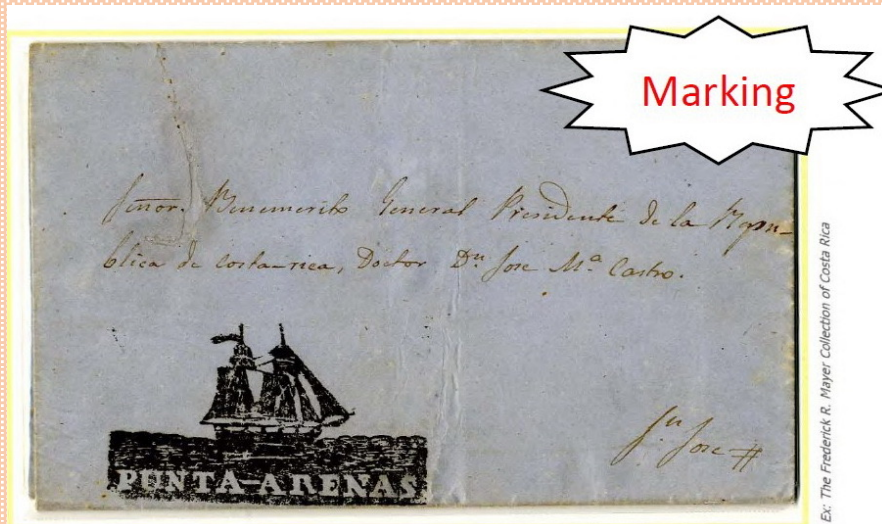 Marking
Señor. Benemerito General Presidente de la Repu-
blica de Costa-rica, Doctor Dn Jose Ma Castro.
Sn Jose
PUNTA-ARENAS
Ex: The Frederick R. Mayer Collection of Costa Rica